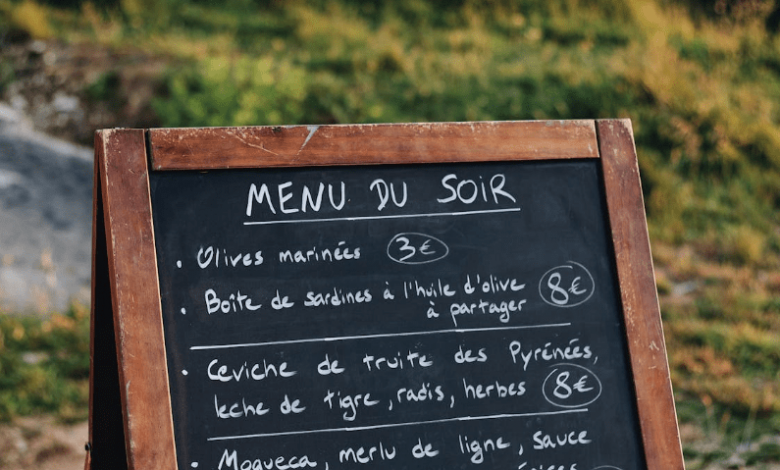 MENU DU SOIR
• Olives marinées 3€
• Boîte de sardines à l'huile d'olive
à partager 8€
• Ceviche de truite des Pyrénées,
leche de tigre, radis, herbes 8€
• Moqueca, merlu de ligne, sauce
épices